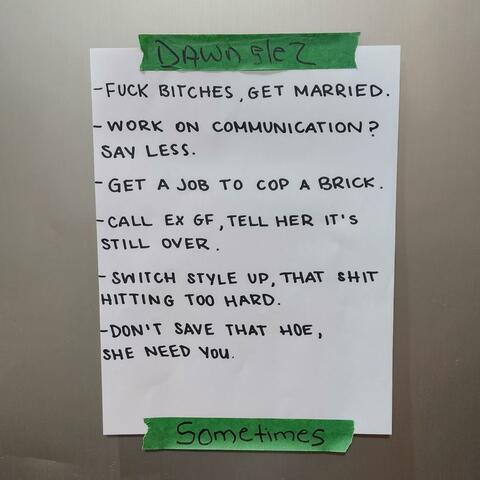 DAWN glez
-FUCK BITCHES, GET MARRIED.
-WORK ON COMMUNICATION?
SAY LESS.
-GET A JOB TO COP A BRICK.
-CALL EX GF, TELL HER IT'S
STILL OVER.
-SWITCH STYLE UP, THAT SHIT
HITTING TOO HARD.
-DON'T SAVE THAT HOE,
SHE NEED YOU.
Sometimes